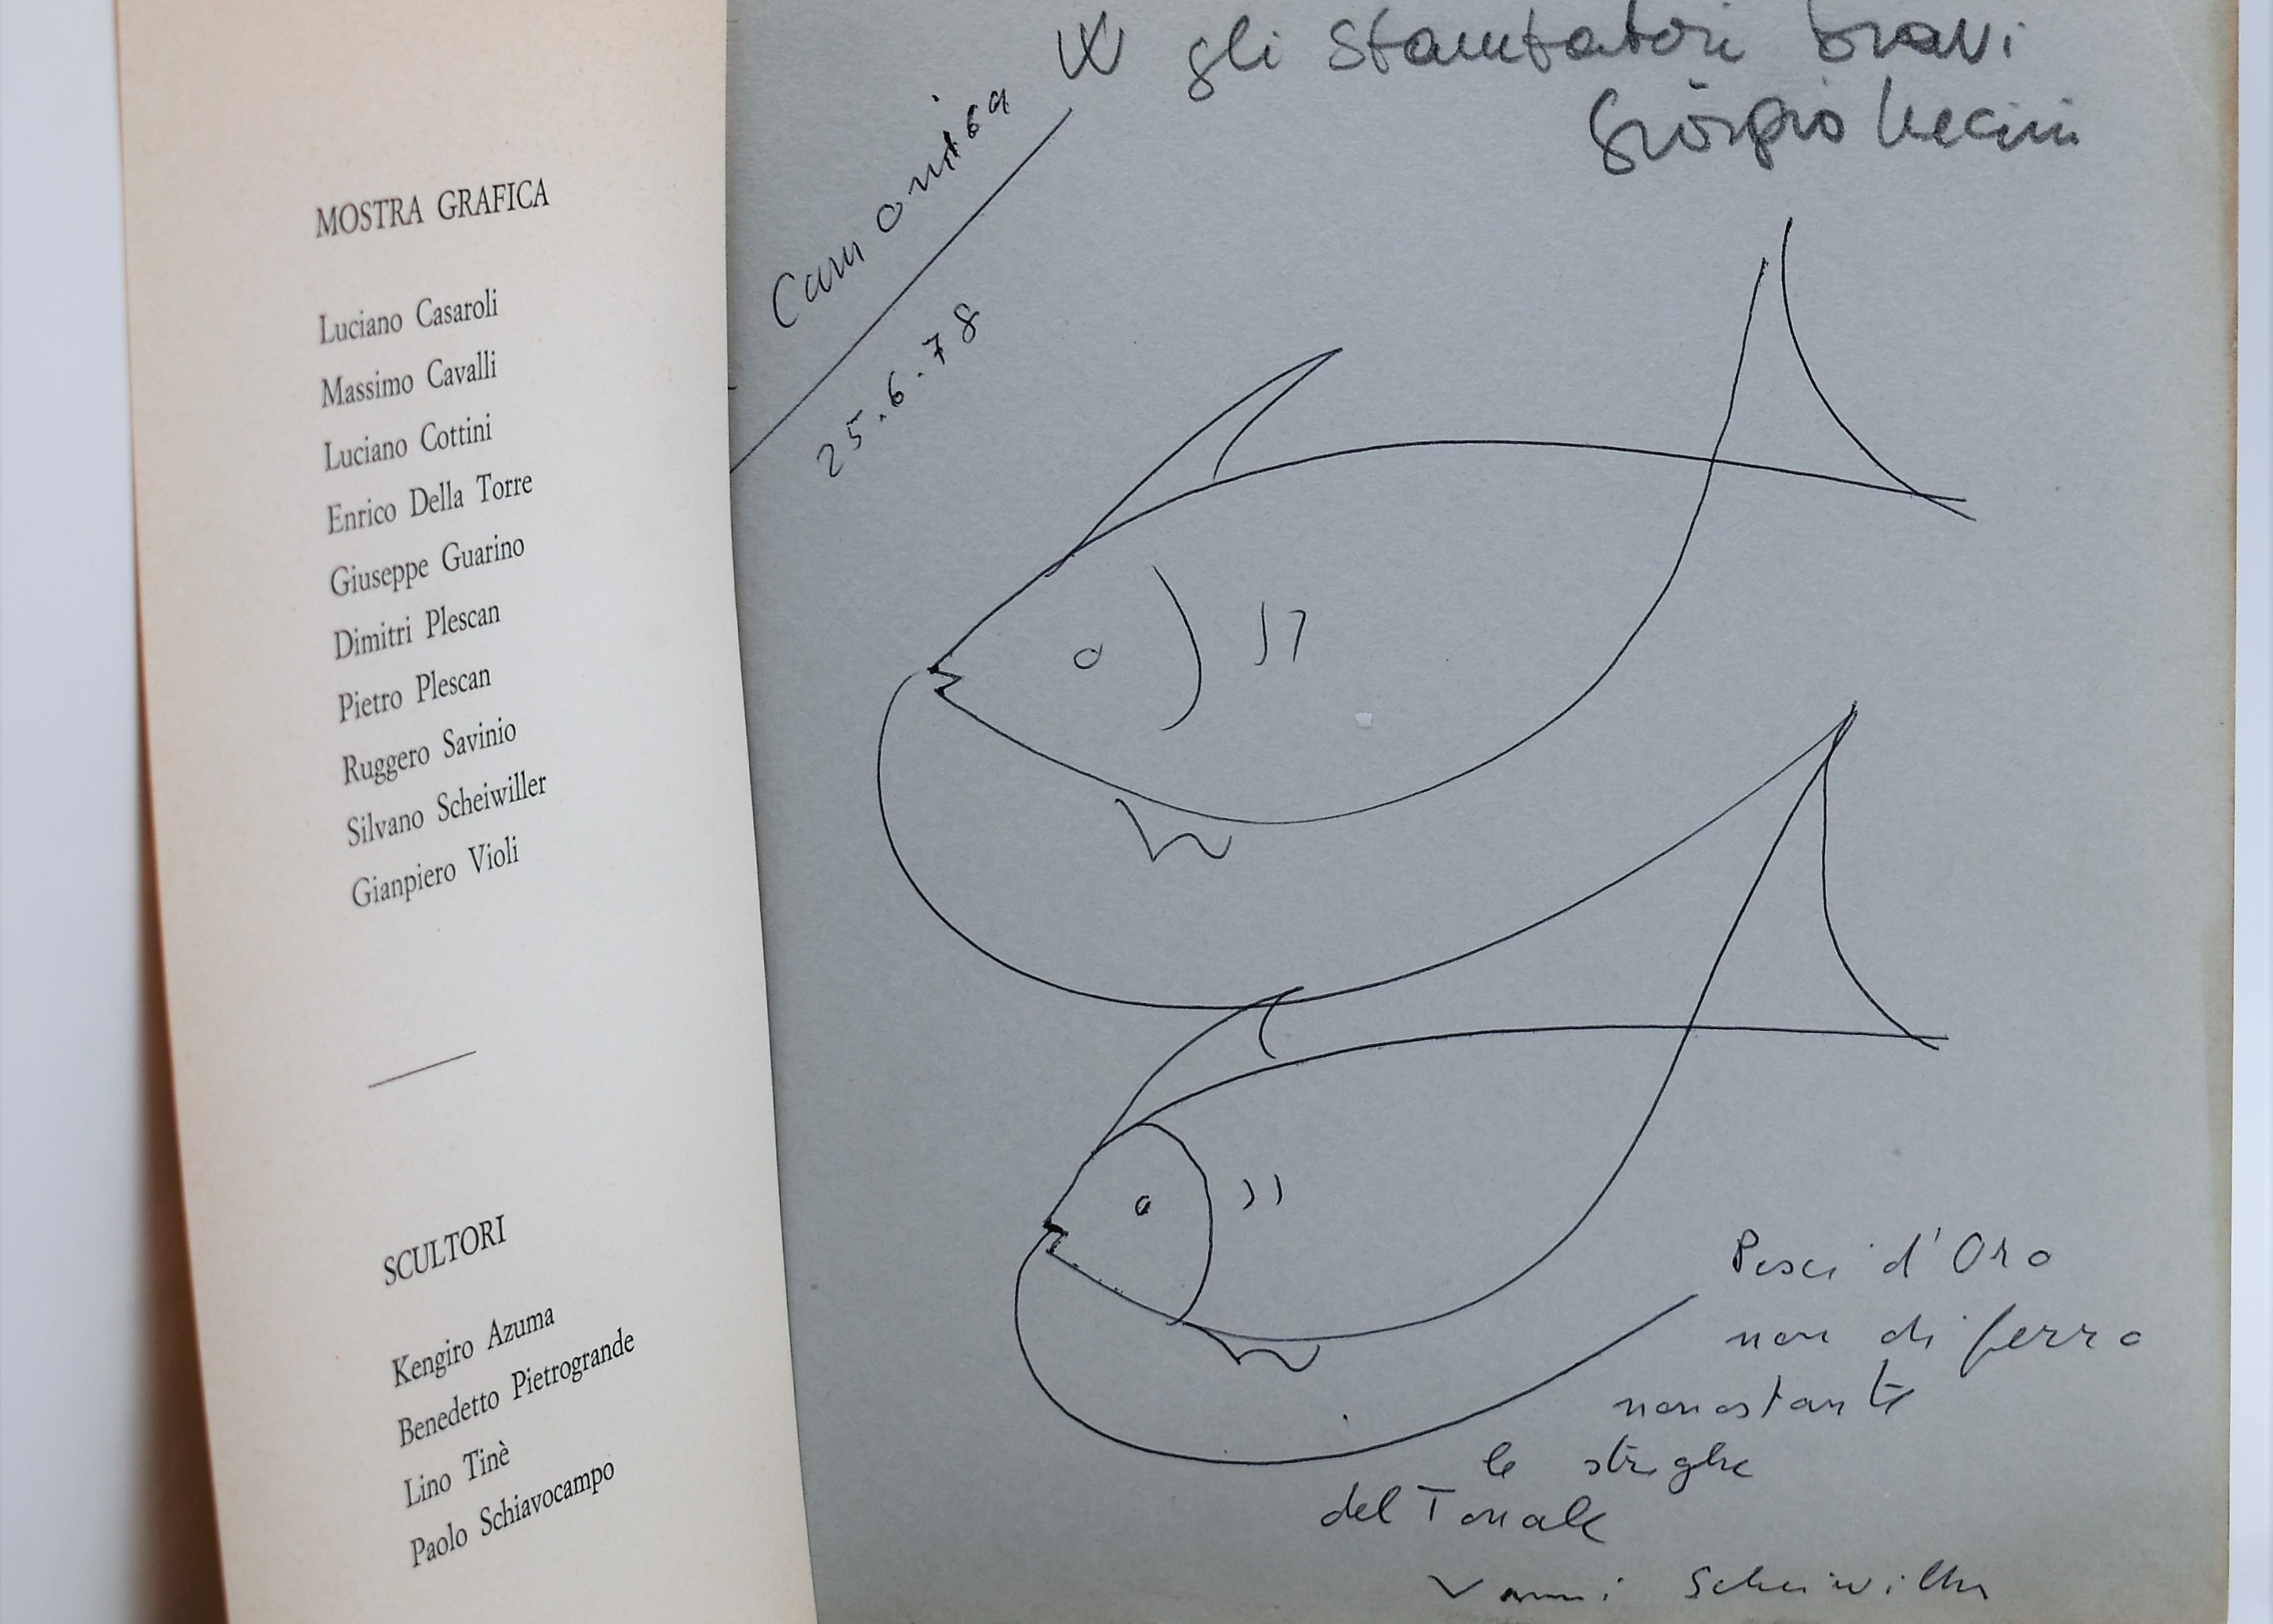 MOSTRA GRAFICA
Luciano Casaroli
Massimo Cavalli
Luciano Cottini
Enrico Della Torre
Giuseppe Guarino
Dimitri Plescan
Pietro Plescan
Ruggero Savinio
Silvano Scheiwiller
Gianpiero Violi
SCULTORI
Kengiro Azuma
Benedetto Pietrogrande
Lino Tinè
Paolo Schiavocampo
W gli stampatori bravi
Giorgio
25.6.78
Pesci d'Oro
non di ferro
nonostante
le streghe
del Tonale
Vanni Scheiwiller